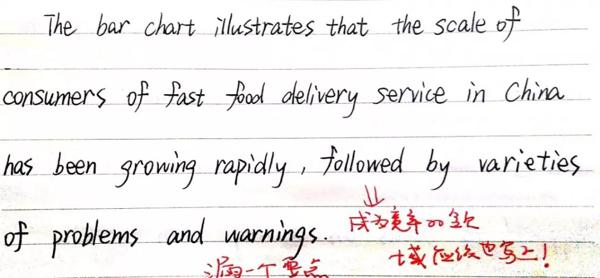 The bar chart illustrates that the scale of
consumers of fast food delivery service in China
has been growing rapidly, followed by varieties
of problems and warnings.
漏一个要点